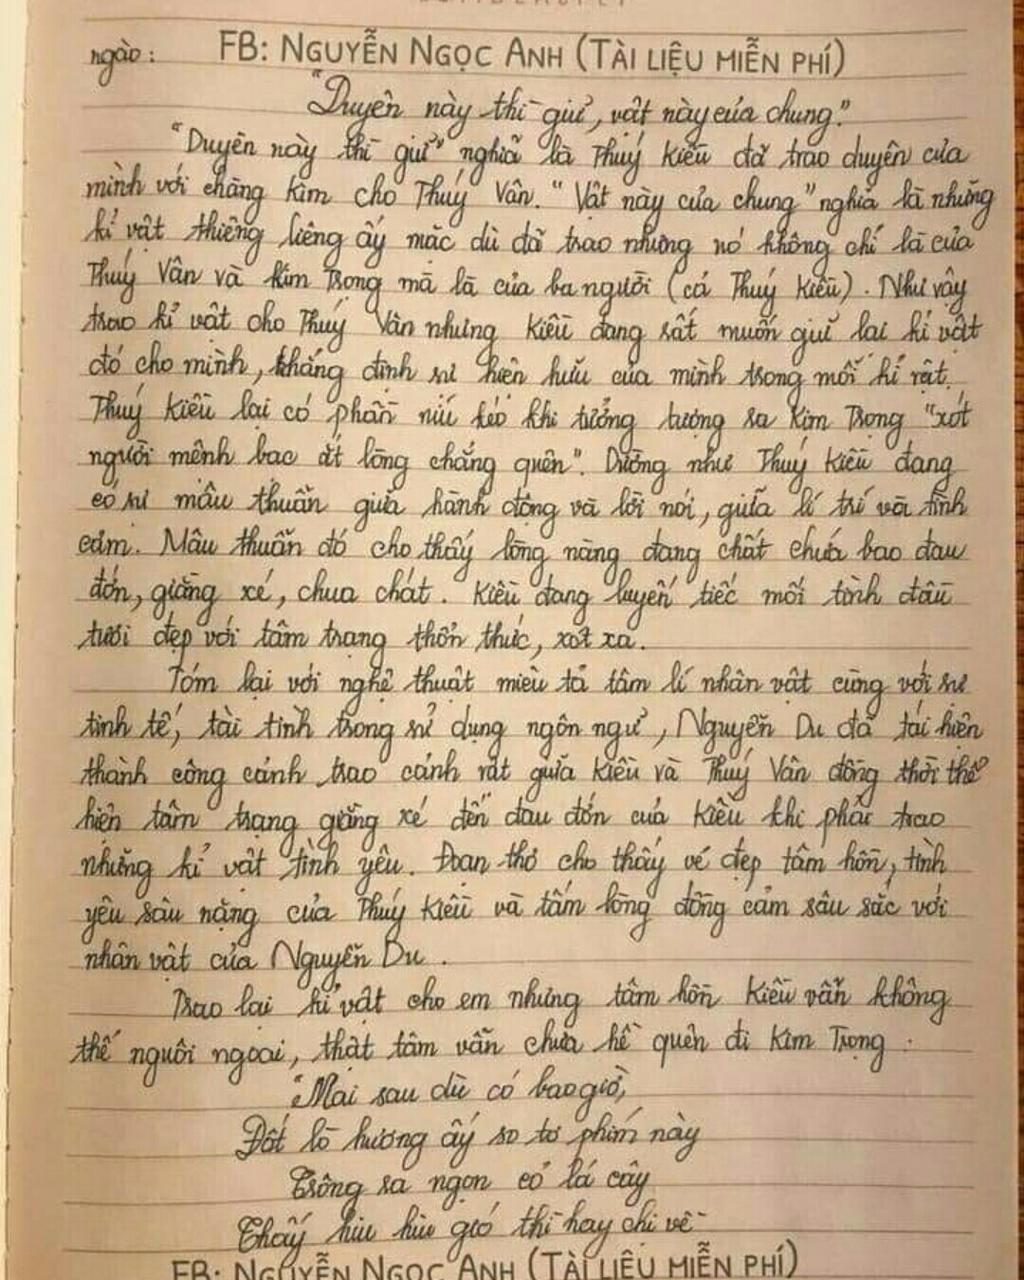 ngào:
FB: NGUYỄN NGỌC ANH (TÀI LIỆU MIỄN PHÍ)
"Duyên này thì giữ, vật này của chung."
"Duyên này thì giữ" nghĩa là Thuý Kiều đã trao duyên của
mình với chàng Kim cho Thuý Vân. "Vật này của chung" nghĩa là những
kỉ vật thiêng liêng ấy mặc dù đã trao nhưng nó không chỉ là của
Thuý Vân và Kim Trọng mà là của ba người (cả Thuý Kiều). Như vậy
trao kỉ vật cho Thuý Vân nhưng Kiều đang rất muốn giữ lại kỉ vật
đó cho mình, khẳng định sự hiện hữu của mình trong mỗi kỉ vật.
Thuý Kiều lại có phần níu kéo khi tưởng tượng ra Kim Trọng "xót
người mệnh bạc ắt lòng chẳng quên". Dường như Thuý Kiều đang
có sự mâu thuẫn giữa hành động và lời nói, giữa lí trí và tình
cảm. Mâu thuẫn đó cho thấy lòng nàng đang chất chứa bao đau
đớn, giằng xé, chua chát. Kiều đang luyến tiếc mối tình đầu
tươi đẹp với tâm trạng thổn thức, xót xa.
Tóm lại với nghệ thuật miêu tả tâm lí nhân vật cùng với sự
tinh tế, tài tình trong sử dụng ngôn ngữ, Nguyễn Du đã tái hiện
thành công cảnh trao cảnh rất giữa Kiều và Thuý Vân đồng thời thể
hiện tâm trạng giằng xé đến đau đớn của Kiều khi phải trao
những kỉ vật tình yêu. Đoạn thơ cho thấy vẻ đẹp tâm hồn, tình
yêu sâu nặng của Thuý Kiều và tấm lòng đồng cảm sâu sắc với
nhân vật của Nguyễn Du.
Trao lại kỉ vật cho em nhưng tâm hồn Kiều vẫn không
thể nguôi ngoai, thật tâm vẫn chưa hề quên đi Kim Trọng.
"Mai sau dù có bao giờ,
Đốt lò hương ấy so tơ phím này
Trông ra ngọn cỏ lá cây
Thấy hiu hiu gió thì hay chị về
FB: NGUYỄN NGỌC ANH (TÀI LIỆU MIỄN PHÍ)